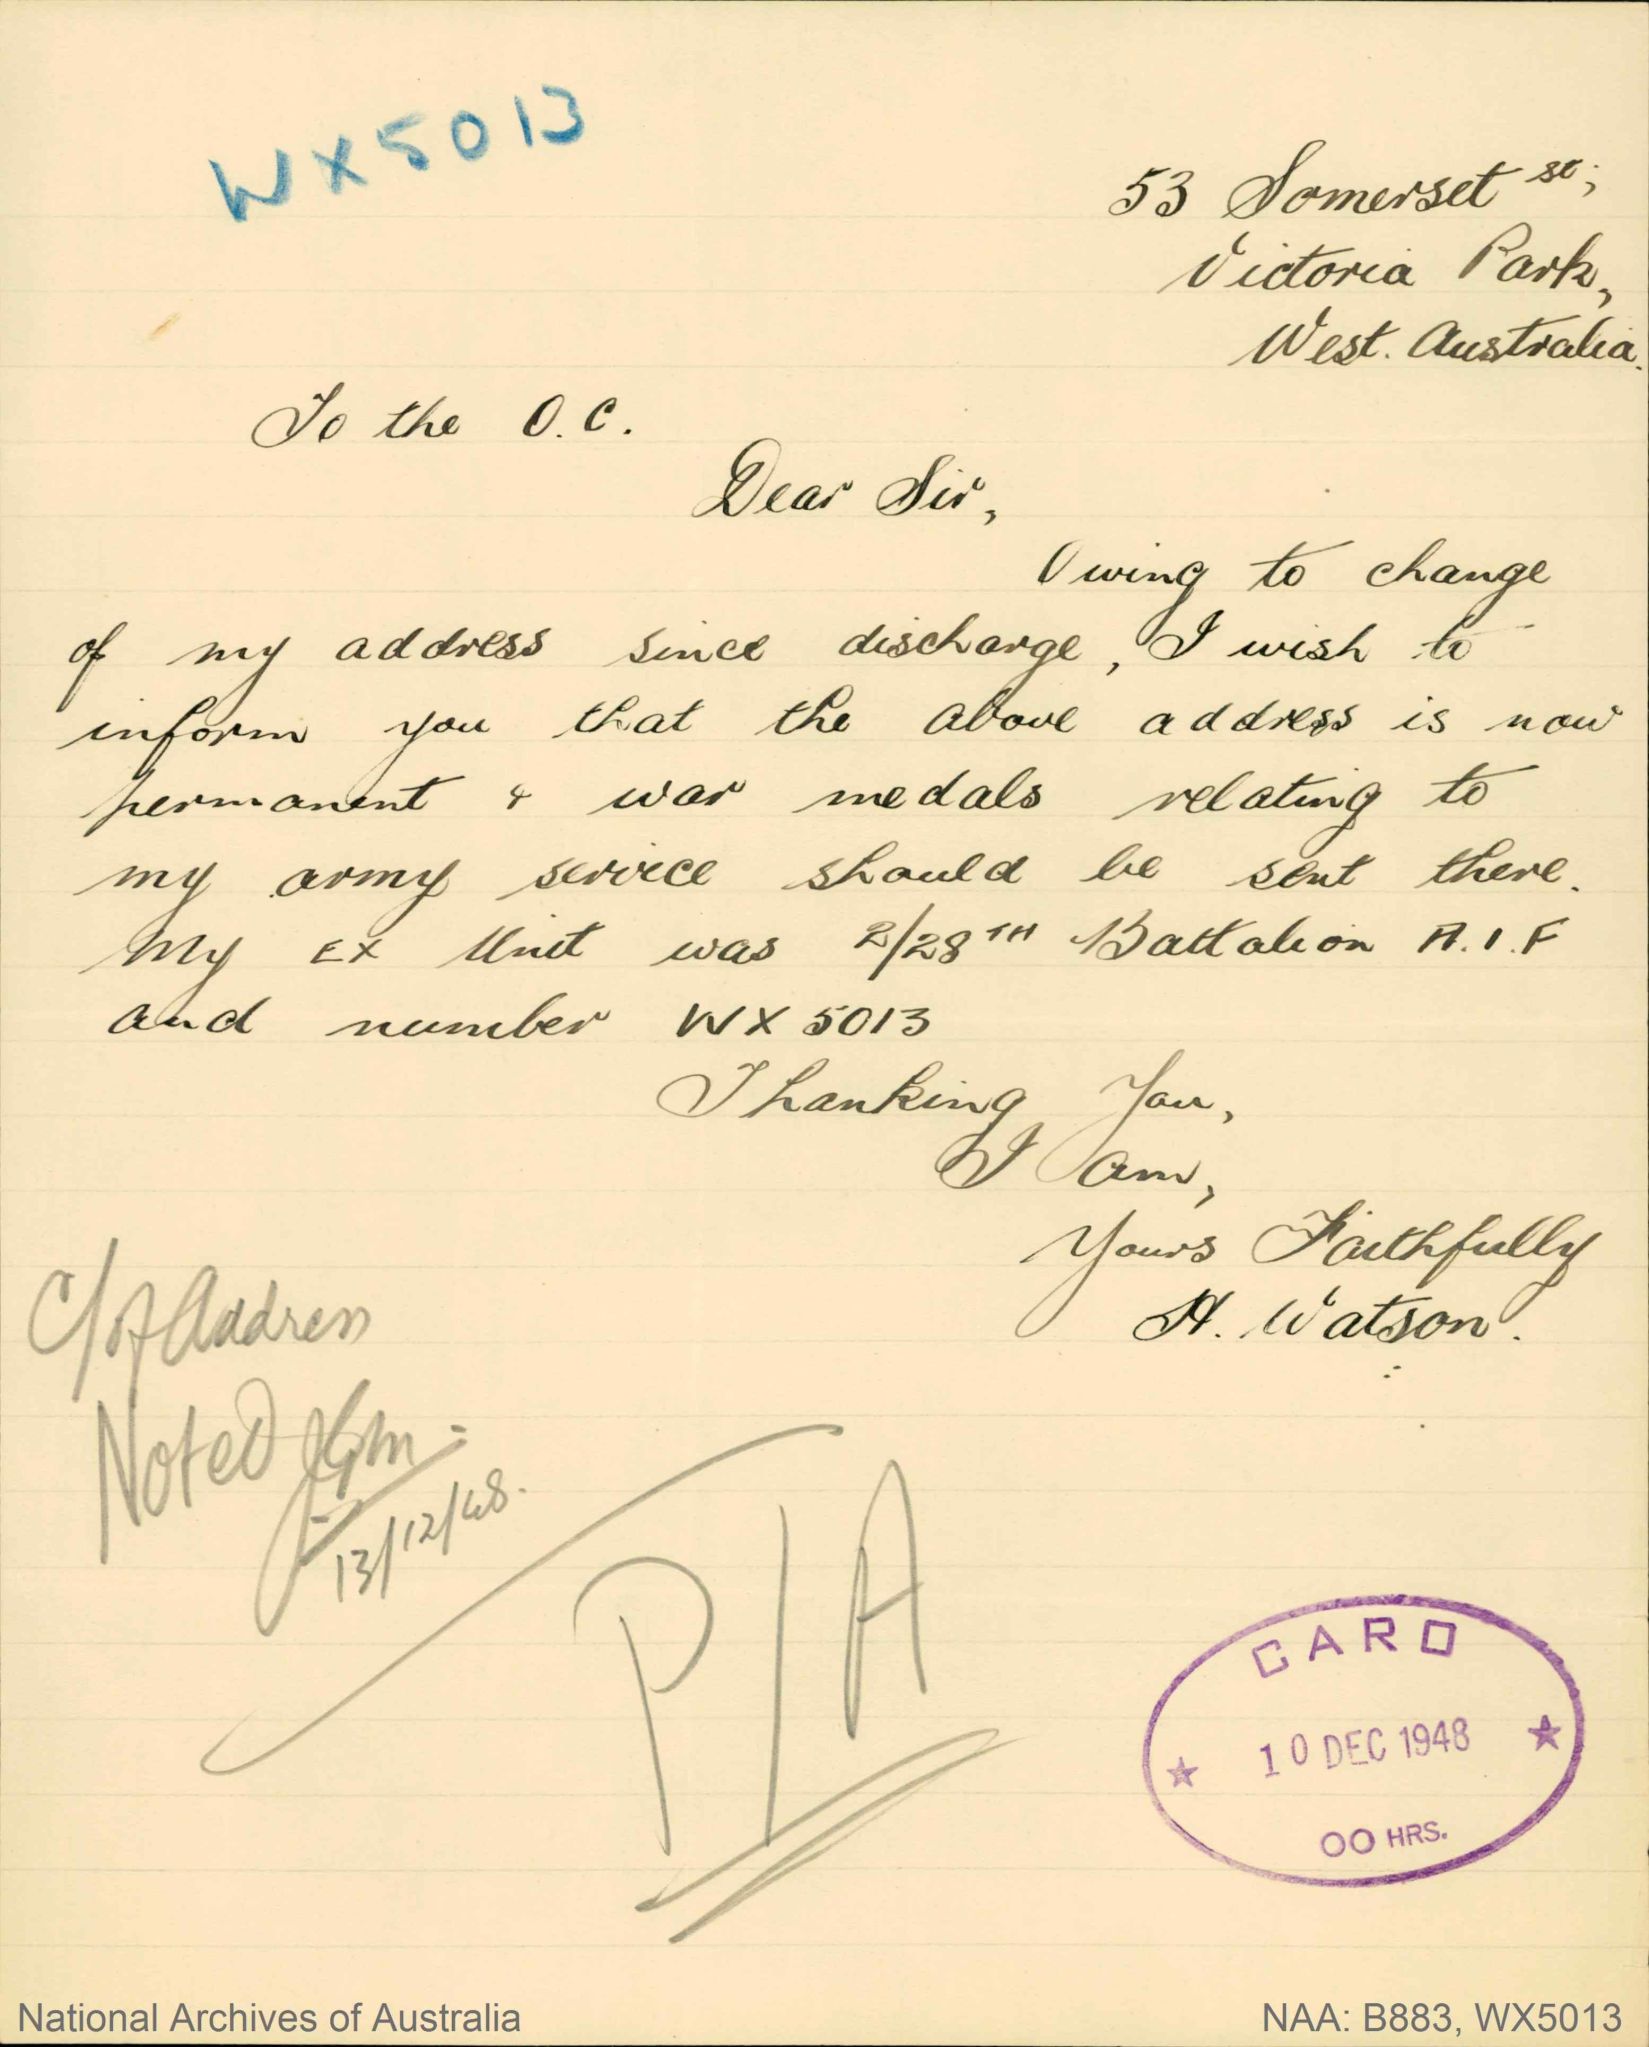 WX5013
53 Somerset St;
Victoria Park,
West. Australia.
To the O.C.
Dear Sir,
Owing to change
of my address since discharge, I wish to
inform you that the above address is now
permanent & war medals relating to
my army service should be sent there.
My EX Unit was 2/28TH Battalion A.I.F
and number WX5013
Thanking You,
I am,
Yours Faithfully
H. Watson.
C/of Address
Noted
13/12/48.
P/A
CARO
10 DEC 1948
00 HRS.
National Archives of Australia
NAA: B883, WX5013